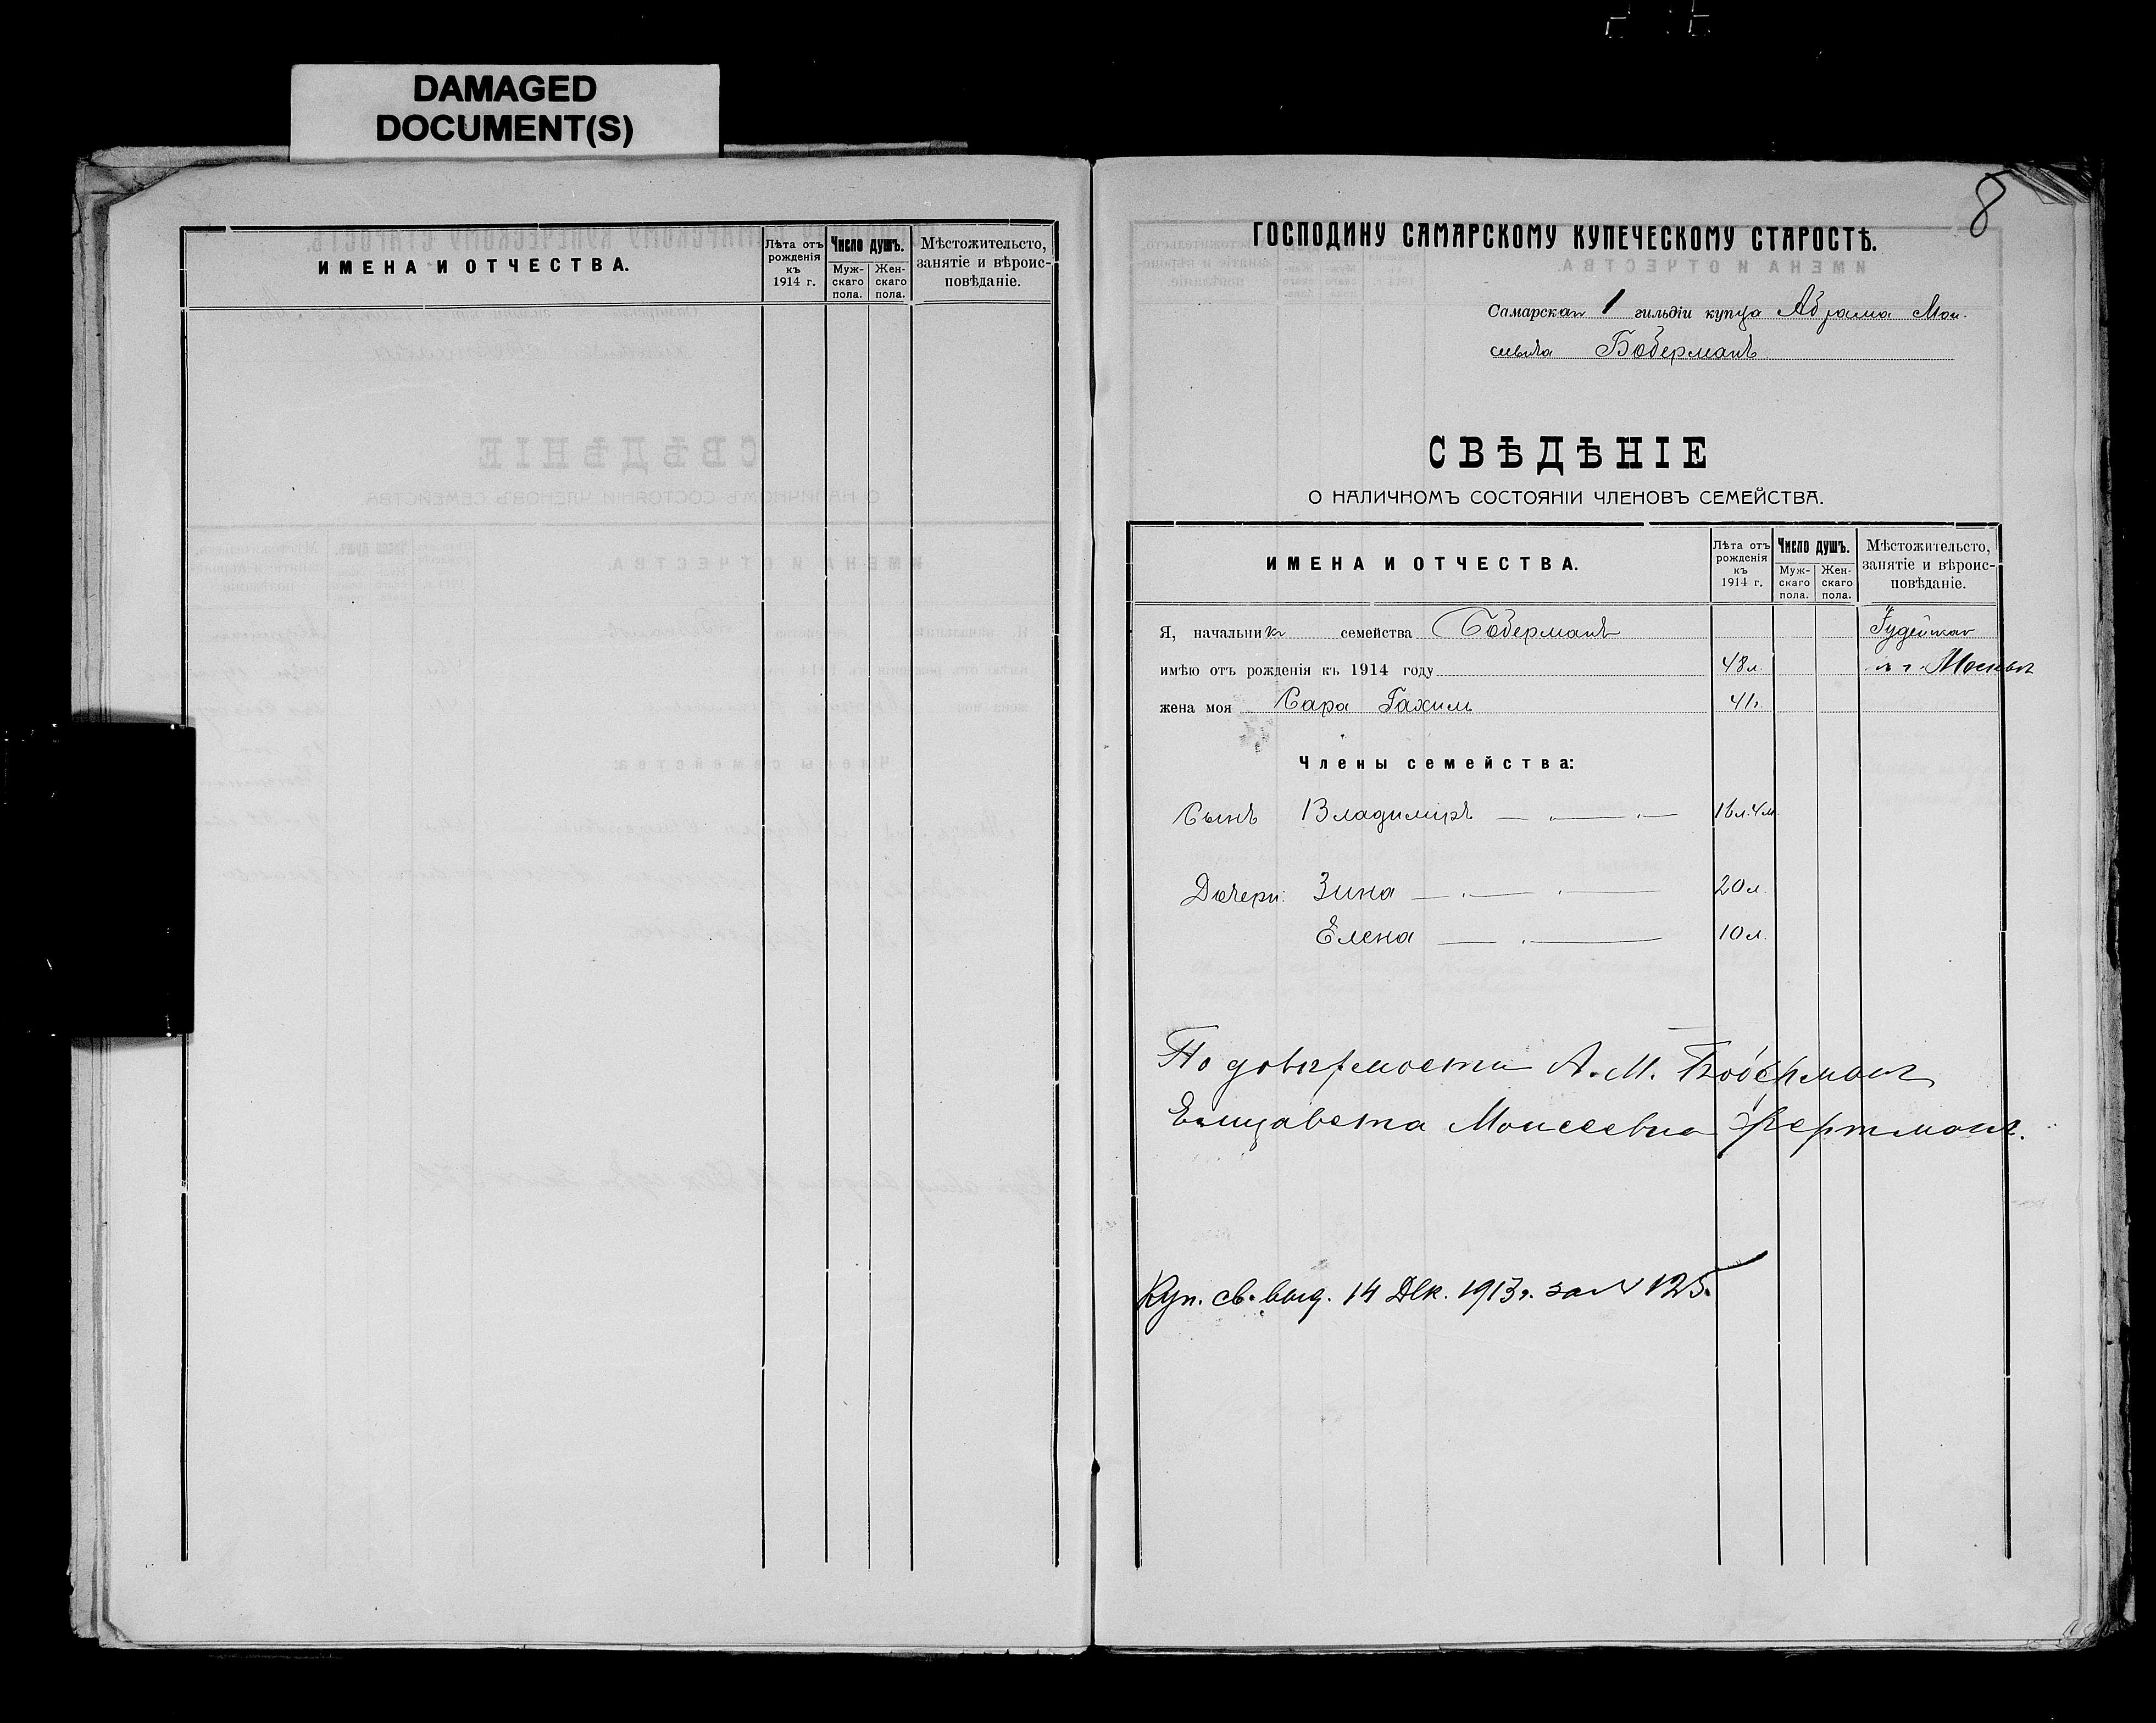 DAMAGED
DOCUMENT(S)
ИМЕНА И ОТЧЕСТВА.
Лѣта отъ рожденія къ 1914 г.
Число душъ.
Муж-скаго пола.
Жен-скаго пола.
Мѣстожительсто, занятіе и вѣроис-повѣданіе.
8
ГОСПОДИНУ САМАРСКОМУ КУПЕЧЕСКОМУ СТАРОСТѢ.
Самарскаго 1 гильдіи купца Абрама Мои-
сеевича Боберманъ
СВѢДѢНІЕ
О НАЛИЧНОМЪ СОСТОЯНІИ ЧЛЕНОВЪ СЕМЕЙСТВА.
ИМЕНА И ОТЧЕСТВА.
Лѣта отъ рожденія къ 1914 г.
Число душъ.
Муж-скаго пола.
Жен-скаго пола.
Мѣстожительсто, занятіе и вѣроис-повѣданіе.
Я, начальникъ семейства Боберманъ
имѣю отъ рожденія къ 1914 году 48 л. въ г. Москвѣ
жена моя Сара 41 г.
Члены семейства:
Сынъ Владимиръ 16 л. 4 м.
Дочери: Зина 20 л.
Елена 10 л.
По довѣренности А. М. Боберманъ
Елизавета Моисеевна
Куп. св. выд. 14 Дек. 1913 г. за № 125.